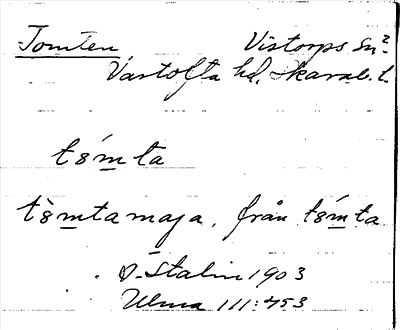 Tomten, Vistorps Sn
Vartofta hd, Skarab. l.
tómta
tòmtamaja, från tómta
O. Stalin 1903
Ulma 111:453